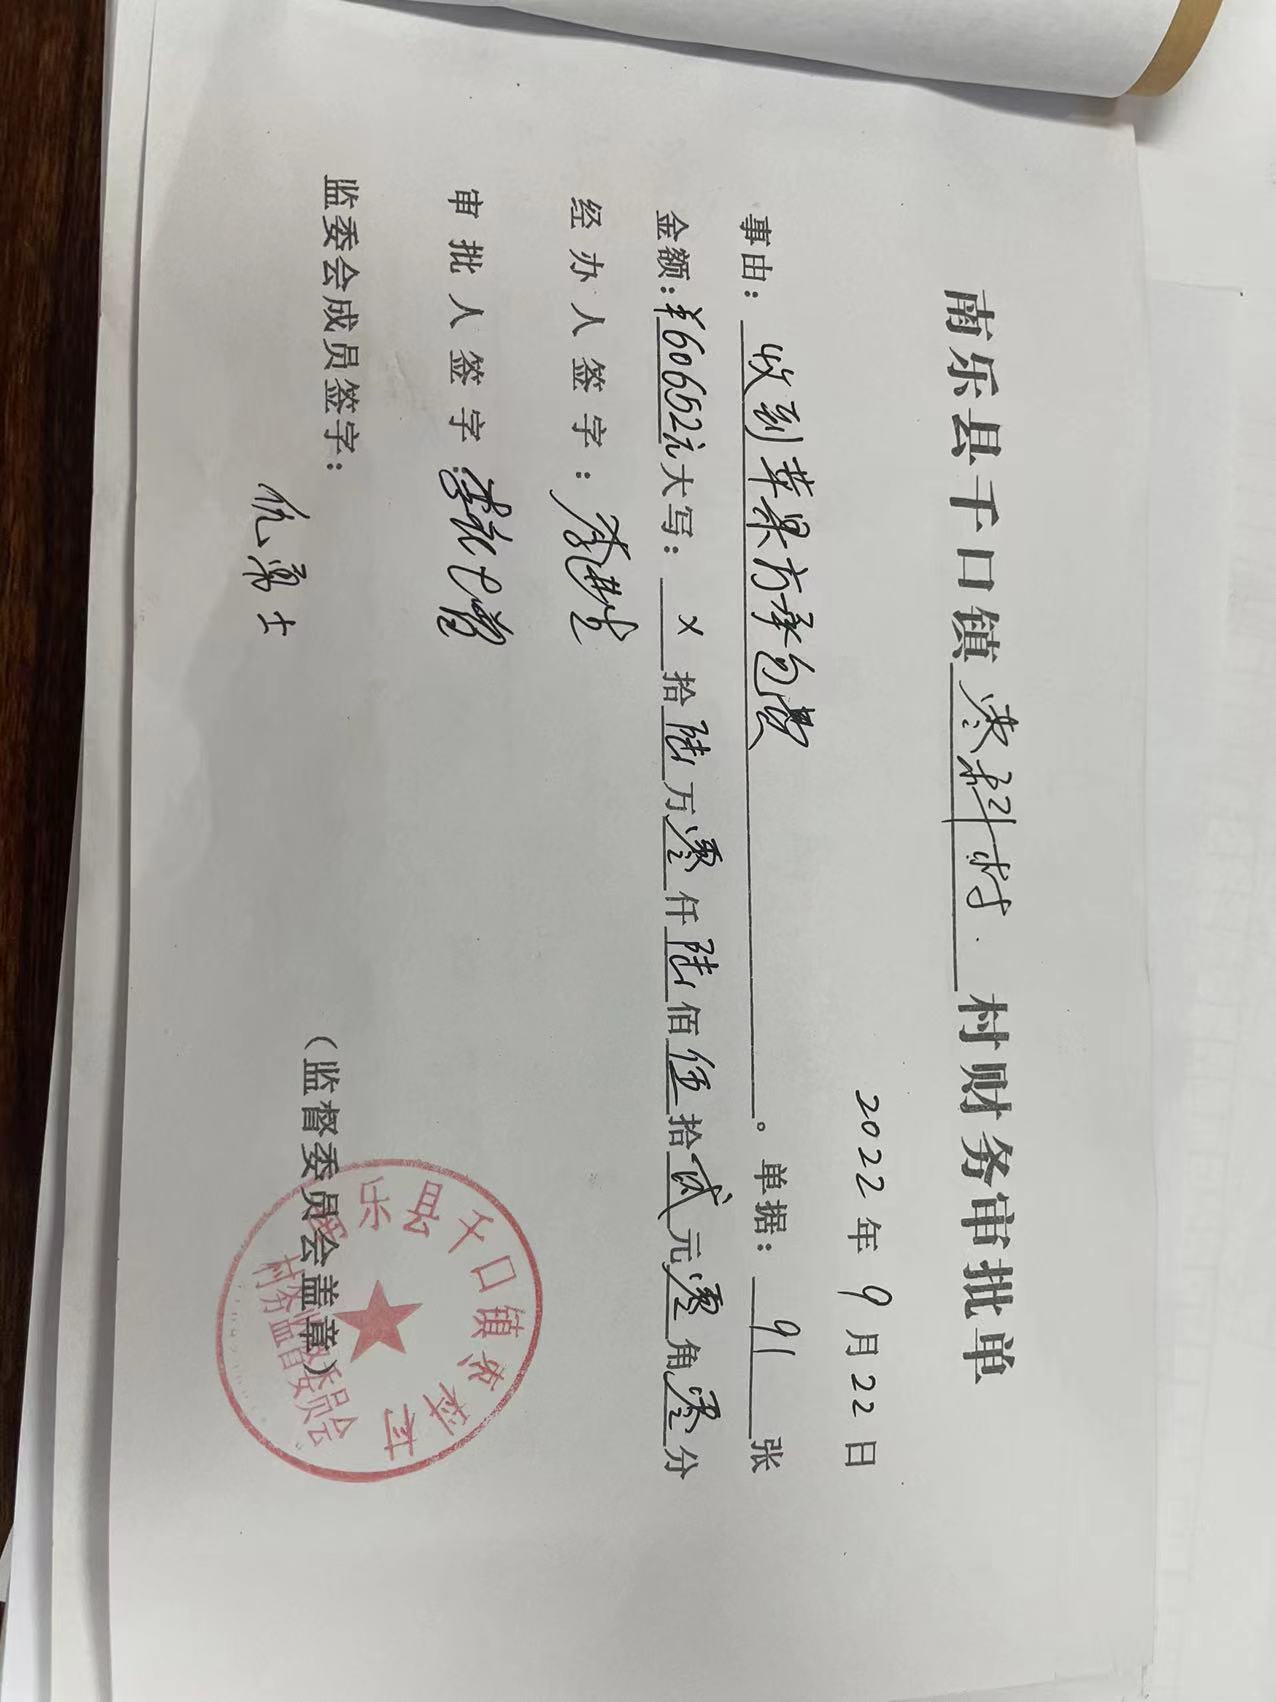 南乐县千口镇 村 村财务审批单
2022年9月22日
事由：收到苹果方承包费。单据：91张
金额：¥60652元大写：X拾陆万零仟陆佰伍拾贰元零角零分
经办人签字：
审批人签字：
监委会成员签字：
仉勇士
（监督委员会盖章）
南乐县千口镇 村
村务监督委员会